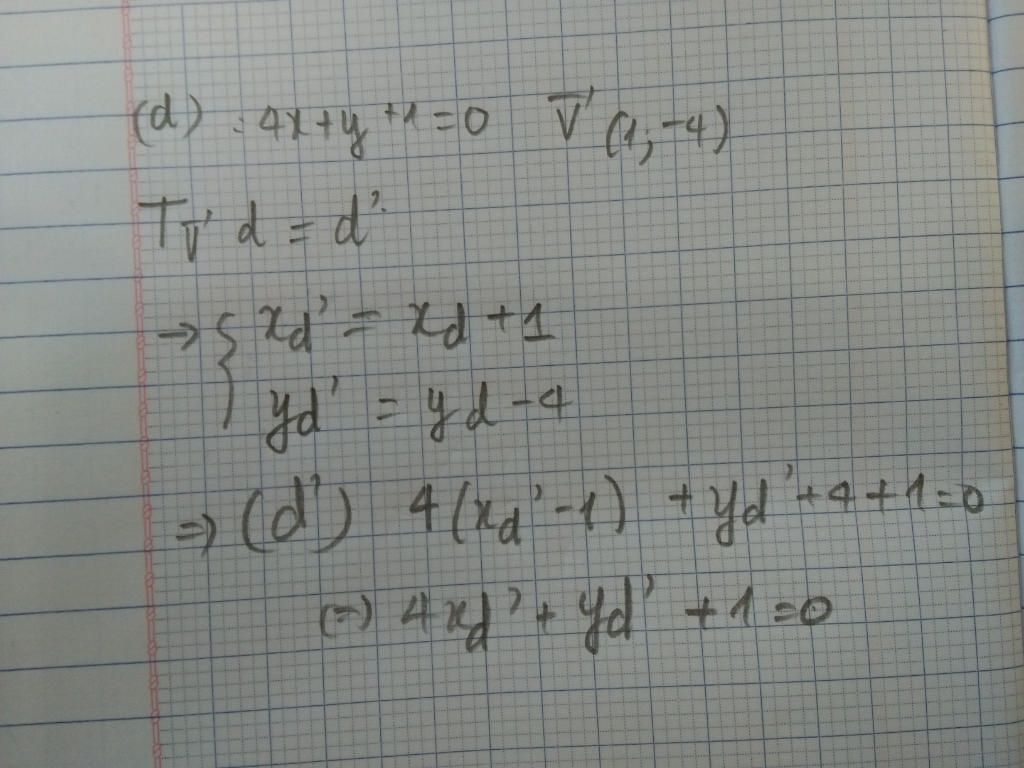 (d) : 4x+y+1=0 v⃗ (1; -4)
Tv⃗ d = d'
→ { xd' = xd + 1
yd' = yd - 4
=> (d') 4(xd' - 1) + yd' + 4 + 1 = 0
(=) 4xd' + yd' + 1 = 0